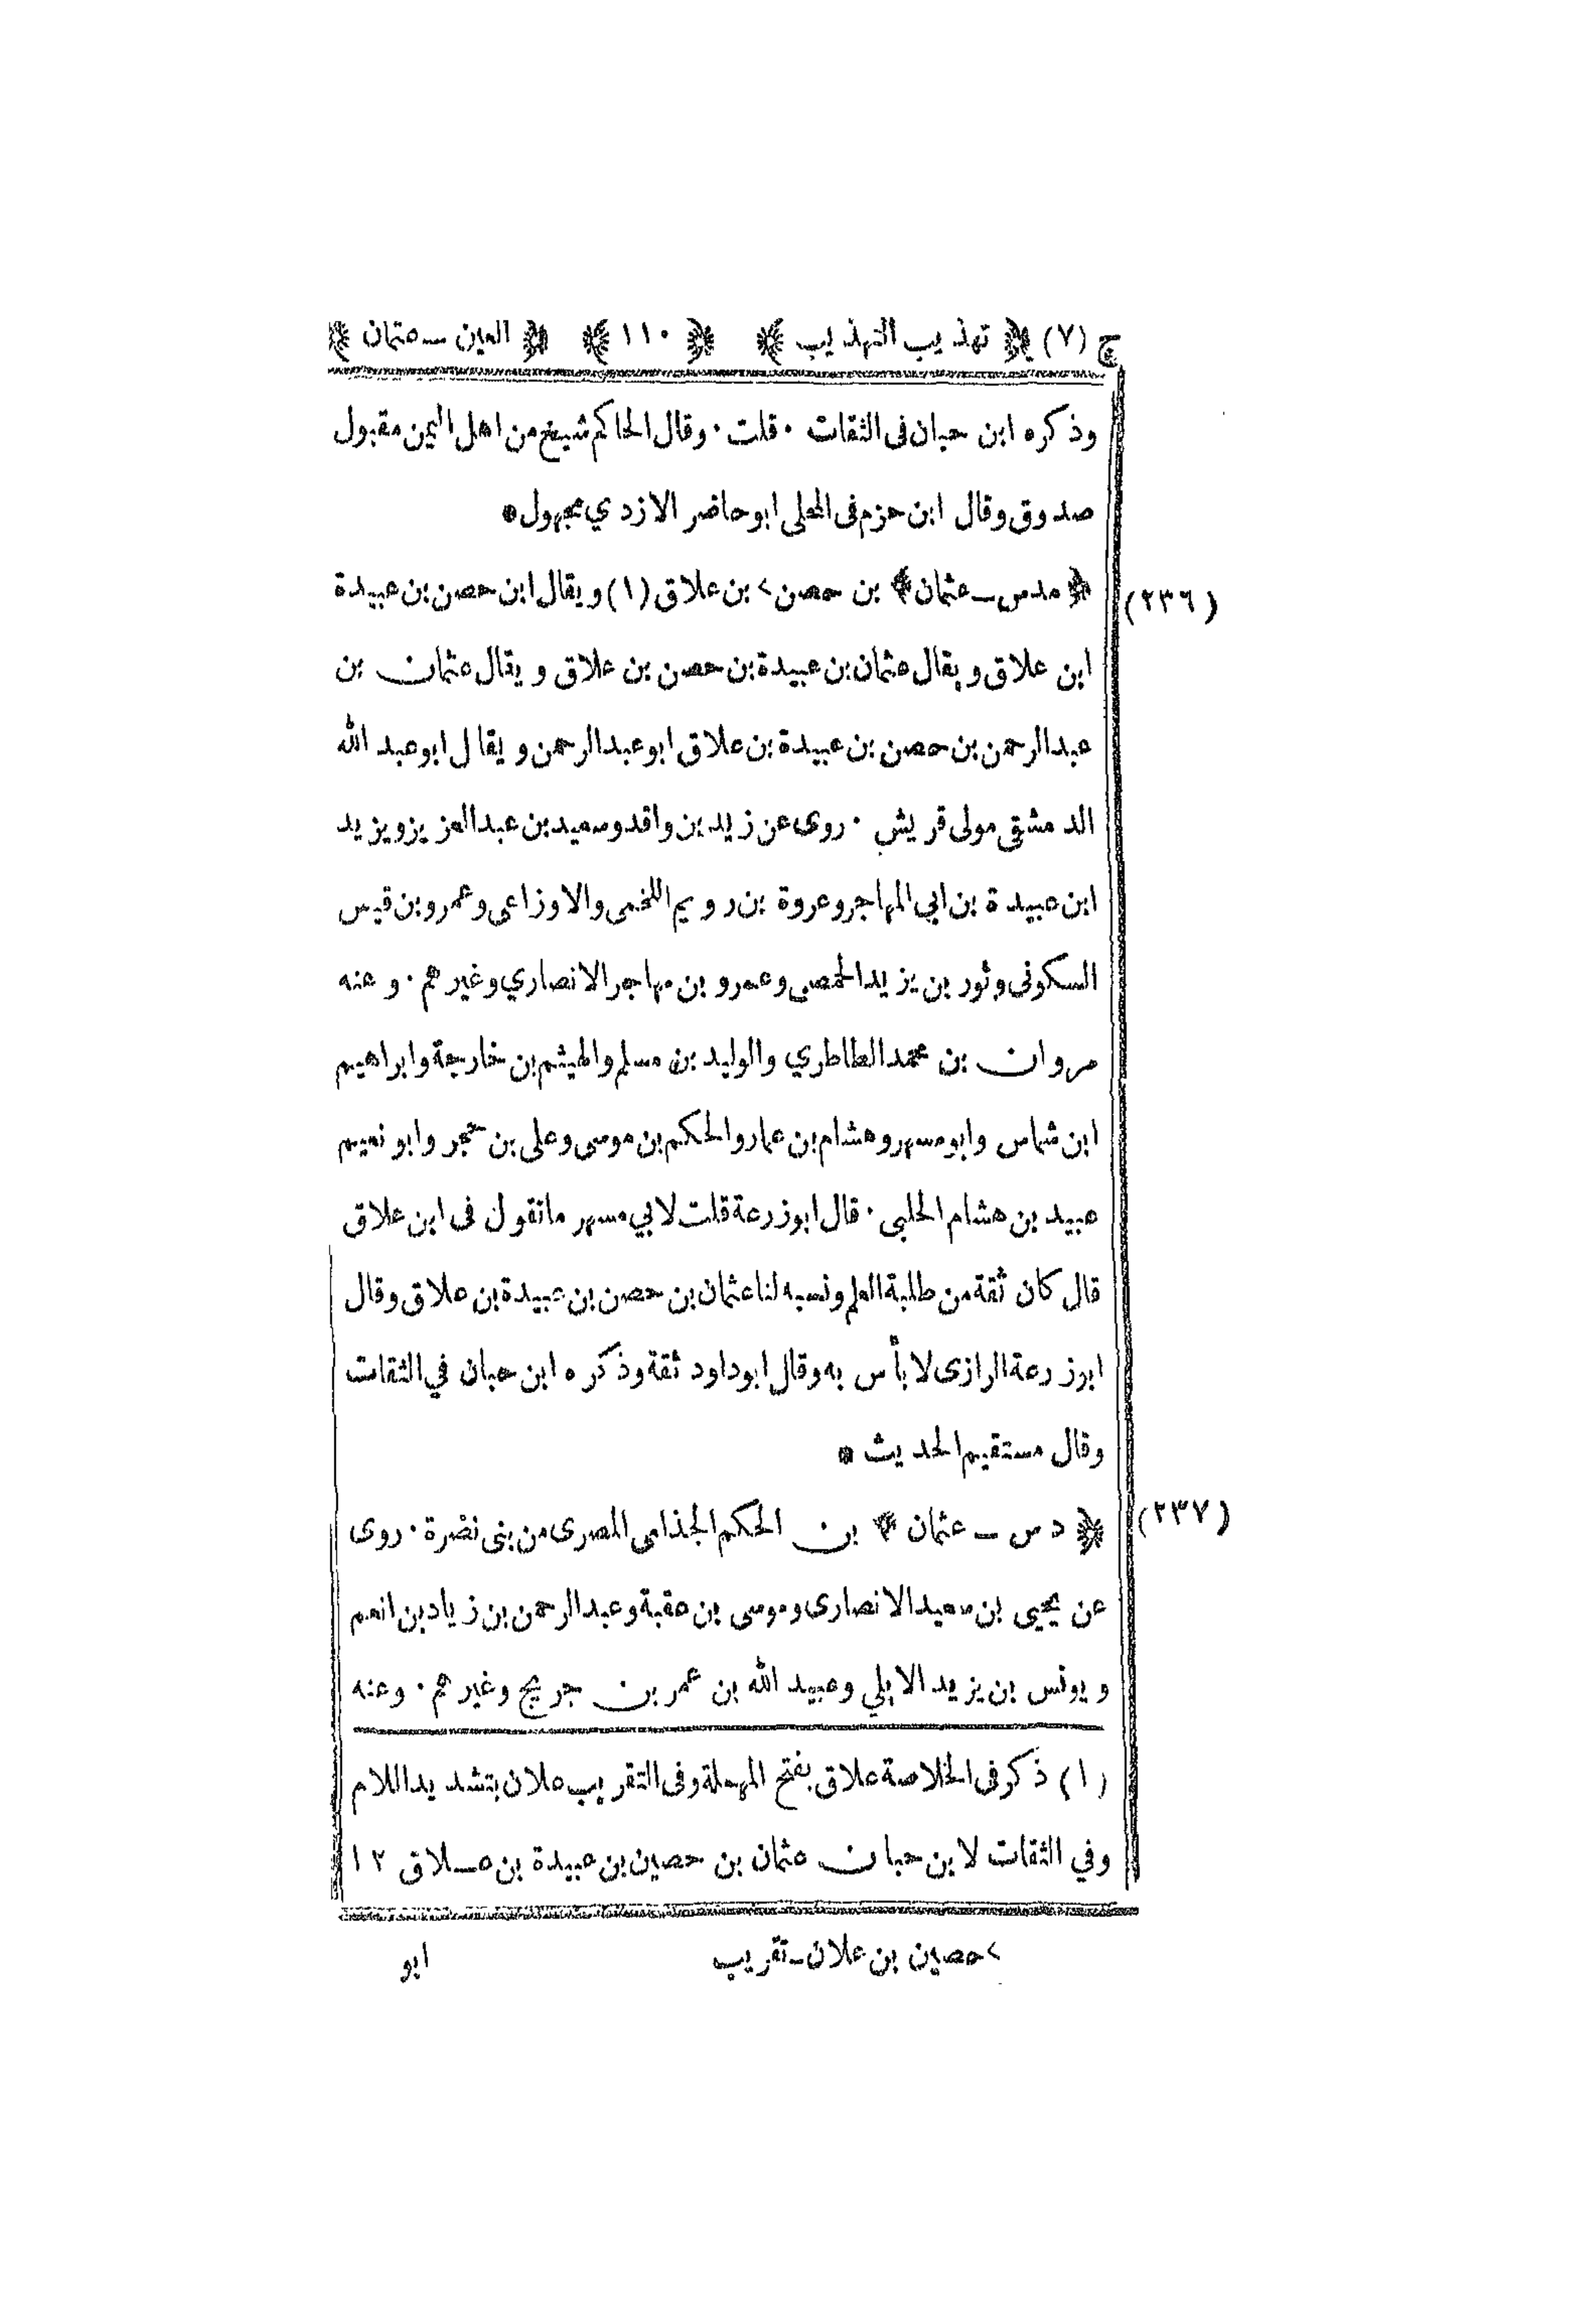 ج (٧) ﴿ تهذيب التهذيب ﴾ ﴿ ١١٠ ﴾ ﴿ العين ــ عثمان ﴾
وذكره ابن حبان فى الثقات · قلت · وقال الحاكم شيخ من اهل اليمن مقبول
صدوق وقال ابن حزم فى المحلى ابو حاضر الازدي مجهول *
(٢٣٦) ﴿ مدس ــ عثمان ﴾ بن حصن > بن علاق (١) ويقال ابن حصن بن عبيدة
ابن علاق ويقال عثمان بن عبيدة بن حصن بن علاق ويقال عثمان بن
عبد الرحمن بن حصن بن عبيدة بن علاق ابو عبد الرحمن ويقال ابو عبد الله
الدمشقى مولى قريش · روى عن زيد بن واقد وسعيد بن عبد العزيز ويزيد
ابن عبيدة بن ابي المهاجر وعروة بن رويم اللخمى والاوزاعى وعمرو بن قيس
السكونى وثور بن يزيد الحمصى وعمرو بن مهاجر الانصاري وغيرهم · وعنه
مروان بن محمد الطاطري والوليد بن مسلم والهيثم بن خارجة وابراهيم
ابن شماس وابو مسهر وهشام بن عمار والحكم بن موسى وعلى بن حجر وابو نعيم
عبيد بن هشام الحلبى · قال ابو زرعة قلت لابي مسهر ما تقول فى ابن علاق
قال كان ثقة من طلبة العلم ونسبه لنا عثمان بن حصن بن عبيدة بن علاق وقال
ابو زرعة الرازى لا بأس به وقال ابو داود ثقة وذكره ابن حبان في الثقات
وقال مستقيم الحديث *
(٢٣٧) ﴿ د س ــ عثمان ﴾ بن الحكم الجذامى المصرى من بنى نضرة · روى
عن يحيى بن سعيد الانصارى وموسى بن عقبة وعبد الرحمن بن زياد بن انعم
ويونس بن يزيد الايلي وعبيد الله بن عمر بن جريج وغيرهم · وعنه
(١) ذكر فى الخلاصة علاق بفتح المهملة وفى التقريب علان بتشديد اللام
وفي الثقات لابن حبان عثمان بن حصين بن عبيدة بن عــلاق ١٢
> حصين بن علان ــ تقريب
ابو